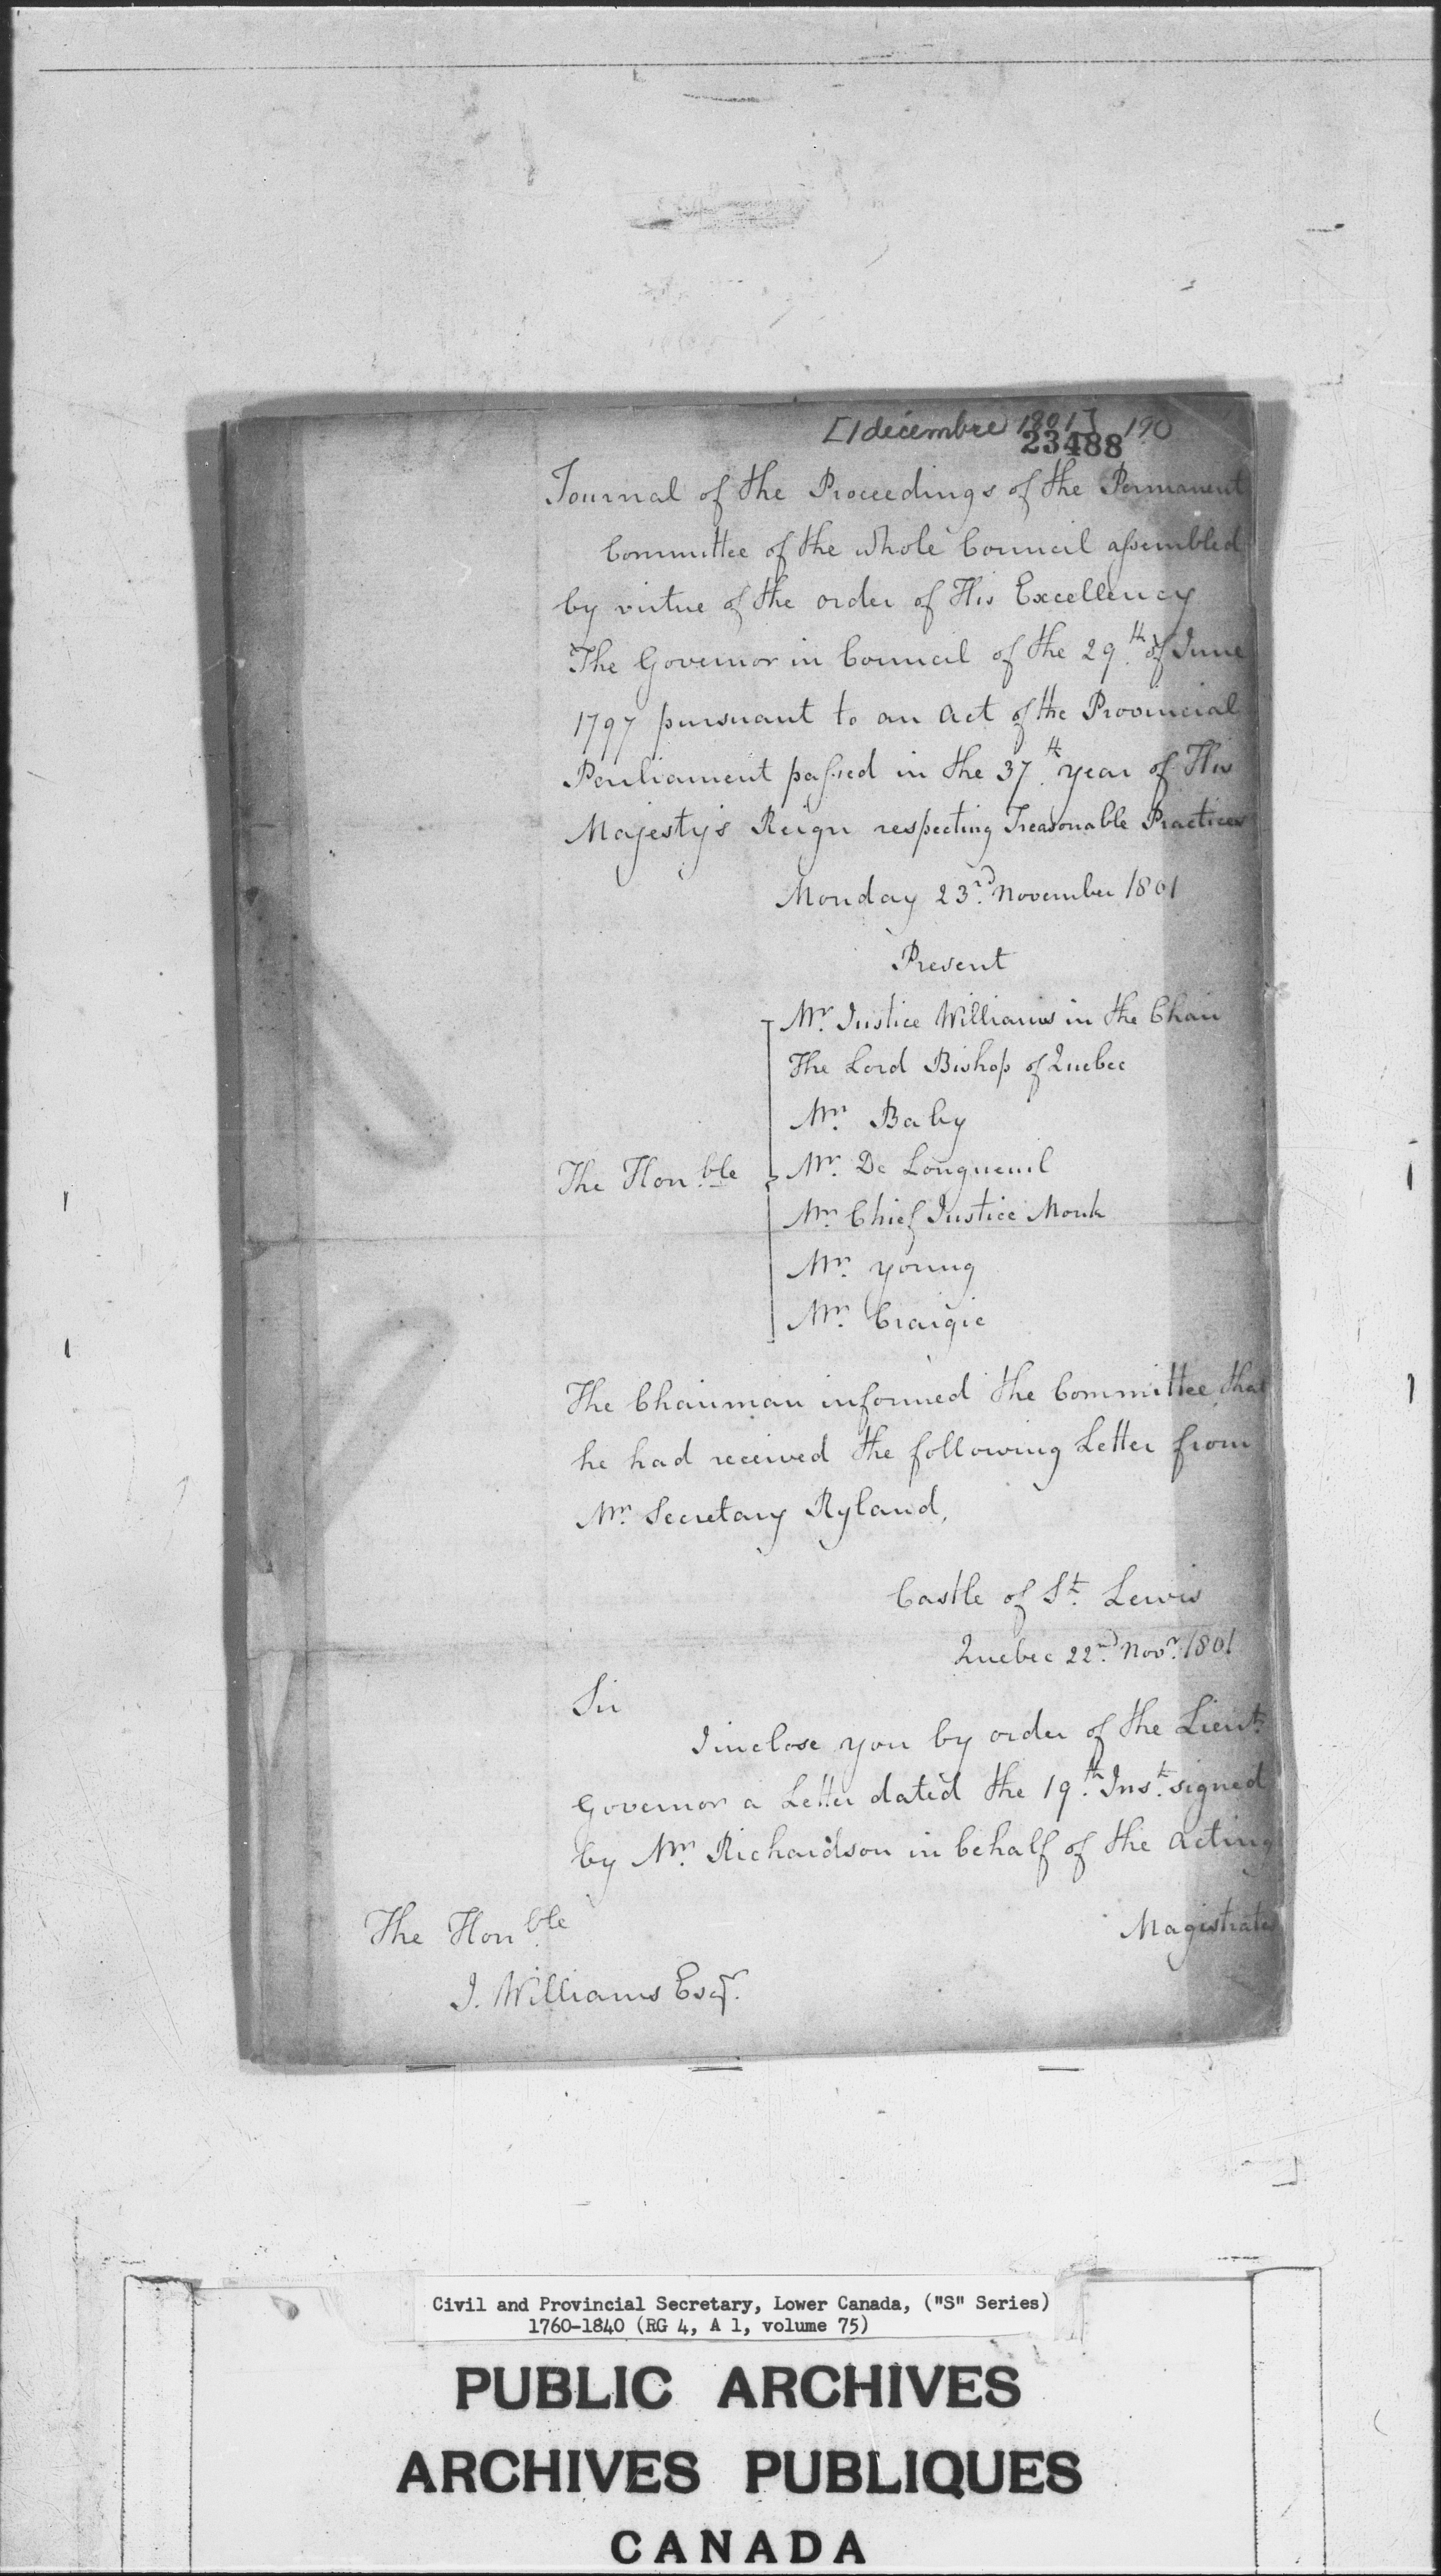 [1 décembre 1801] 190
23488
Journal of the Proceedings of the Permanent
Committee of the whole Council assembled
by virtue of the order of His Excellency
The Governor in Council of the 29th of June
1797 pursuant to an Act of the Provincial
Parliament passed in the 37th year of His
Majesty's Reign respecting Treasonable Practices
Monday 23rd November 1801
Present
Mr. Justice Williams in the Chair
The Lord Bishop of Quebec
Mr. Baby
The Honble Mr. De Longueuil
Mr. Chief Justice Monk
Mr. Young
Mr. Craigie
The Chairman informed the Committee that
he had received the following Letter from
Mr. Secretary Ryland,
Castle of St. Lewis
Quebec 22nd Novr. 1801
Sir
I inclose you by order of the Lieut.
Governor a Letter dated the 19th Inst. signed
by Mr. Richardson in behalf of the Acting
Magistrates
The Honble
J. Williams Esqr.
Civil and Provincial Secretary, Lower Canada, ("S" Series)
1760-1840 (RG 4, A 1, volume 75)
PUBLIC ARCHIVES
ARCHIVES PUBLIQUES
CANADA